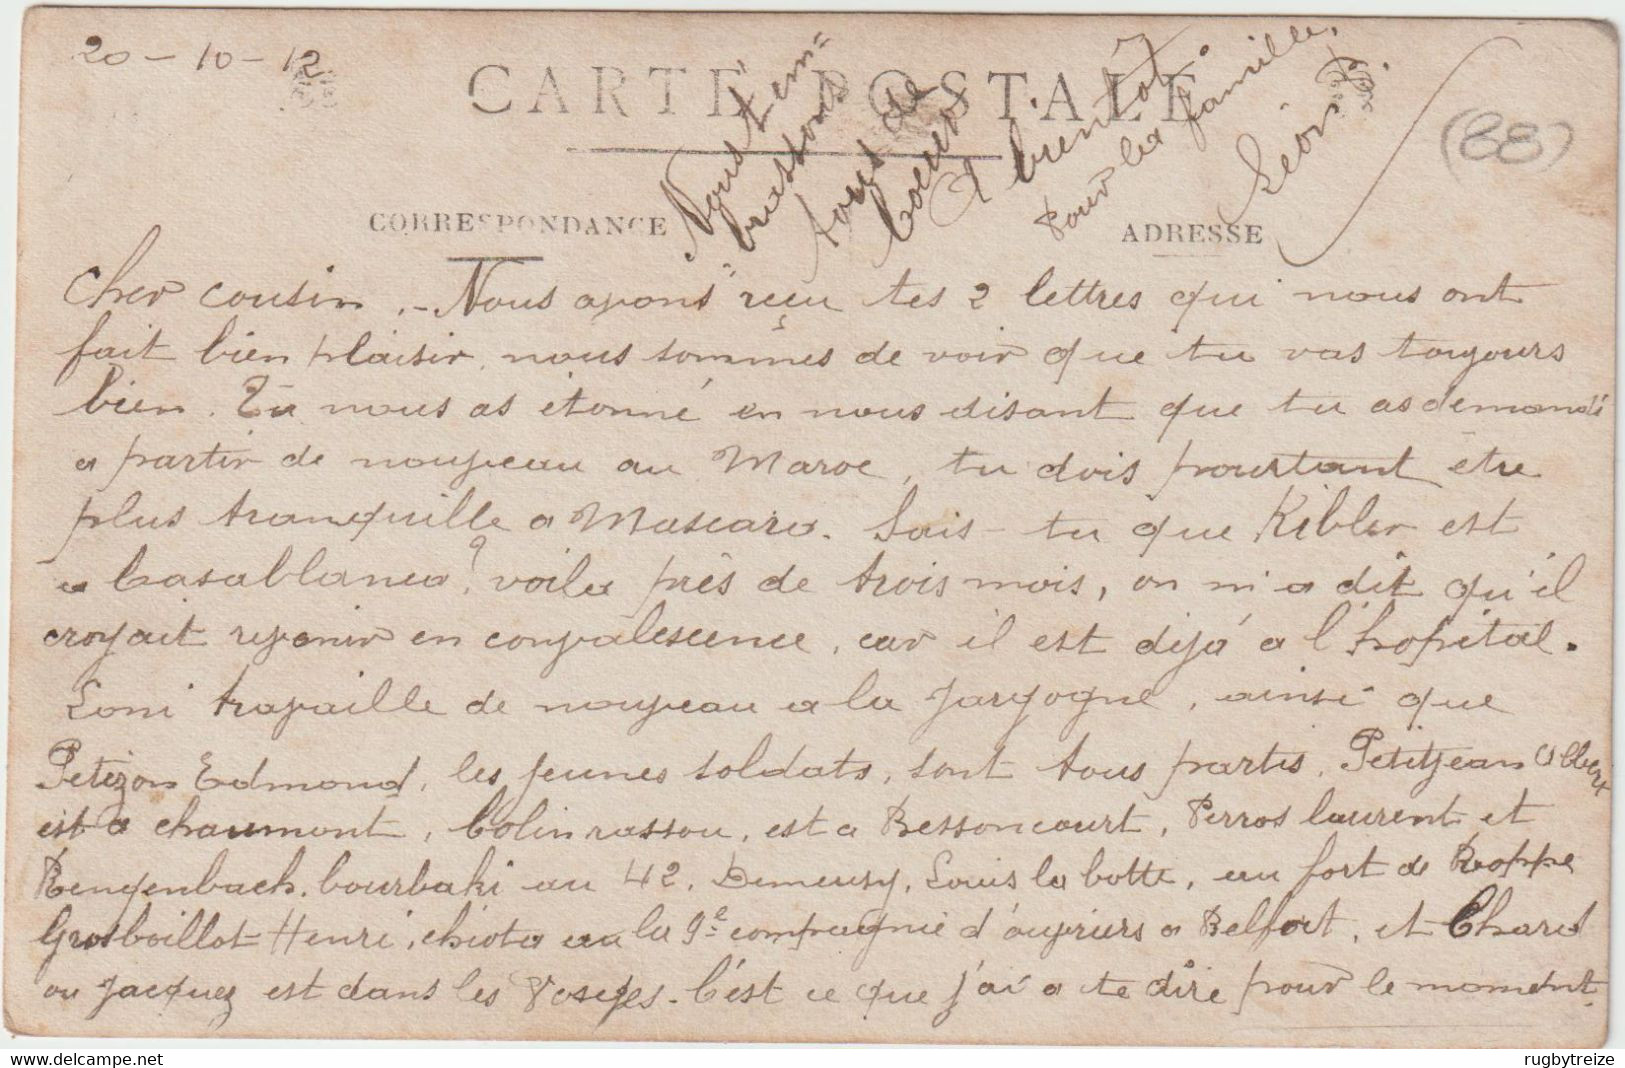 20 - 10 - 12
CARTE POSTALE
CORRESPONDANCE
ADRESSE
(88)
Cher cousin, - Nous avons reçu tes 2 lettres qui nous ont
fait bien plaisir nous sommes de voir que tu vas toujours
bien. Tu nous as étonné en nous disant que tu as demandé
a partir de nouveau au Maroc, tu dois pourtant etre
plus tranquille a Mascara. Sais-tu que Kibler est
a Casablanca? voila près de trois mois, on m'a dit qu'il
croyait revenir en convalescence, car il est déjá a l'hopital.
travaille de nouveau a la ainsi que
Petizon Edmond, les jeunes soldats, sont tous partis, Petitjean Albert
est a chaumont, Colin rassou, est a Bessoncourt, Perros laurent et
Rengenbach. bourbaki au 42, Demeusy, Louis la botte, au fort de Roppe
Grosboillot Henri, chiota au la 9e compagnie d'ouvriers a Belfort, et
ou Jacquez est dans les Vosges. C'est ce que j'ai a te dire pour le moment
Nous t'em=
brassons
tous de
coeur
A bientôt
Pour la famille,
Léon
rugbytreize